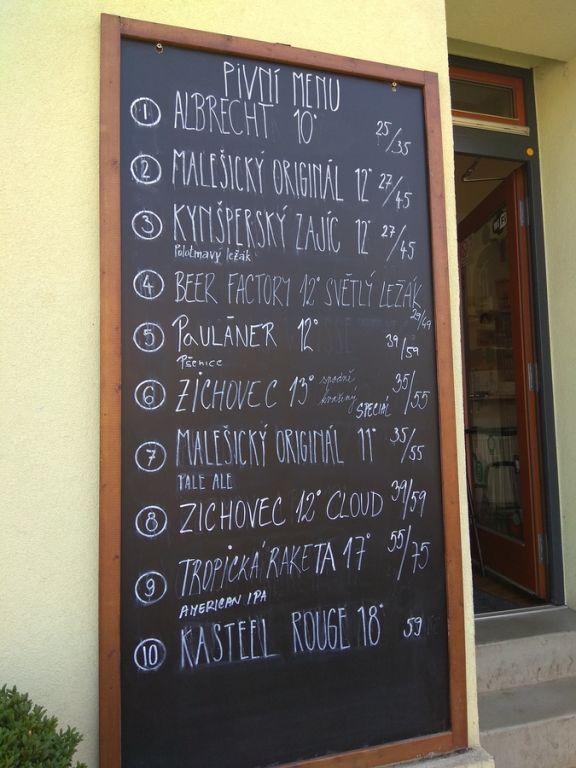 PIVNÍ MENU
1 ALBRECHT 10° 25/35
2 MALEŠICKÝ ORIGINÁL 12° 27/45
3 KYNŠPERSKÝ ZAJÍC 12° 27/45
Polotmavý ležák
4 BEER FACTORY 12° SVĚTLÝ LEŽÁK
29/49
5 PAULÁNER 12° 39/59
Pšenice
6 ZICHOVEC 13° spodně kvašený SPECIÁL 35/55
7 MALEŠICKÝ ORIGINÁL 11° 35/55
PALE ALE
8 ZICHOVEC 12° CLOUD 39/59
9 TROPICKÁ RAKETA 17° 55/75
AMERICAN IPA
10 KASTEEL ROUGE 18° 59